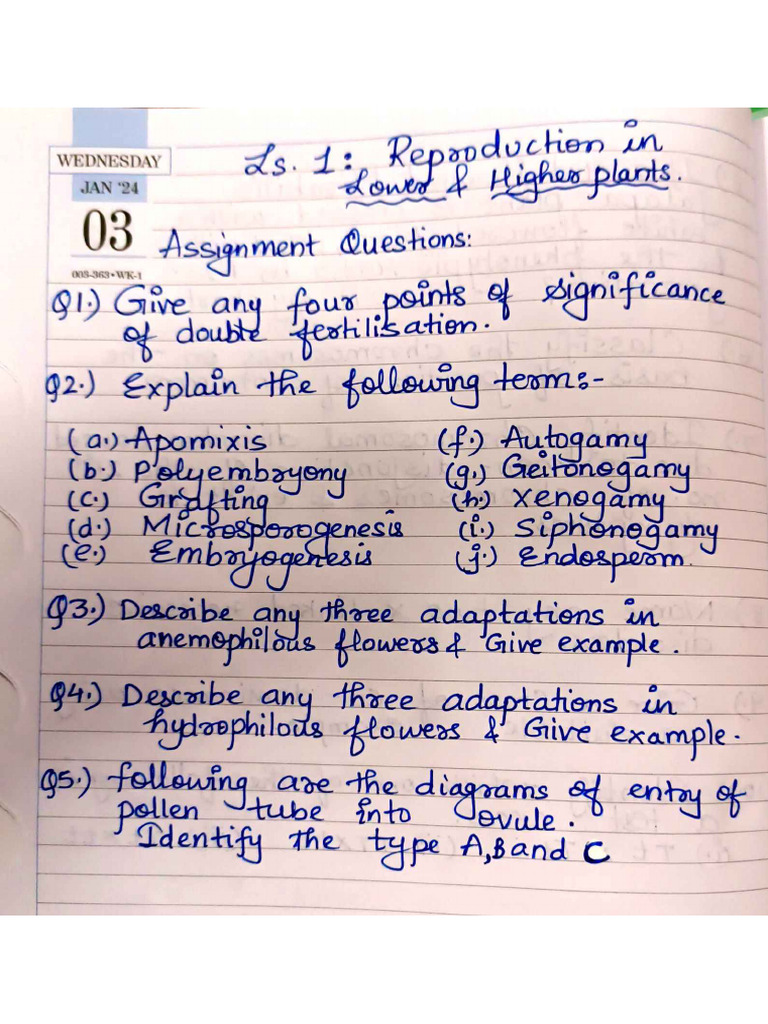 WEDNESDAY
JAN '24
03
003-363•WK-1
Ls. 1: Reproduction in
Lower & Higher plants.
Assignment Questions:
Q1.) Give any four points of significance
of double fertilisation.
Q2.) Explain the following terms:-
(a.) Apomixis (f.) Autogamy
(b.) Polyembryony (g.) Geitonogamy
(c.) Grafting (h.) Xenogamy
(d.) Microsporogenesis (i.) Siphonogamy
(e.) Embryogenesis (j.) Endosperm.
Q3.) Describe any three adaptations in
anemophilous flowers & Give example.
Q4.) Describe any three adaptations in
hydrophilous flowers & Give example.
Q5.) following are the diagrams of entry of
pollen tube into ovule.
Identify the type A, B and C